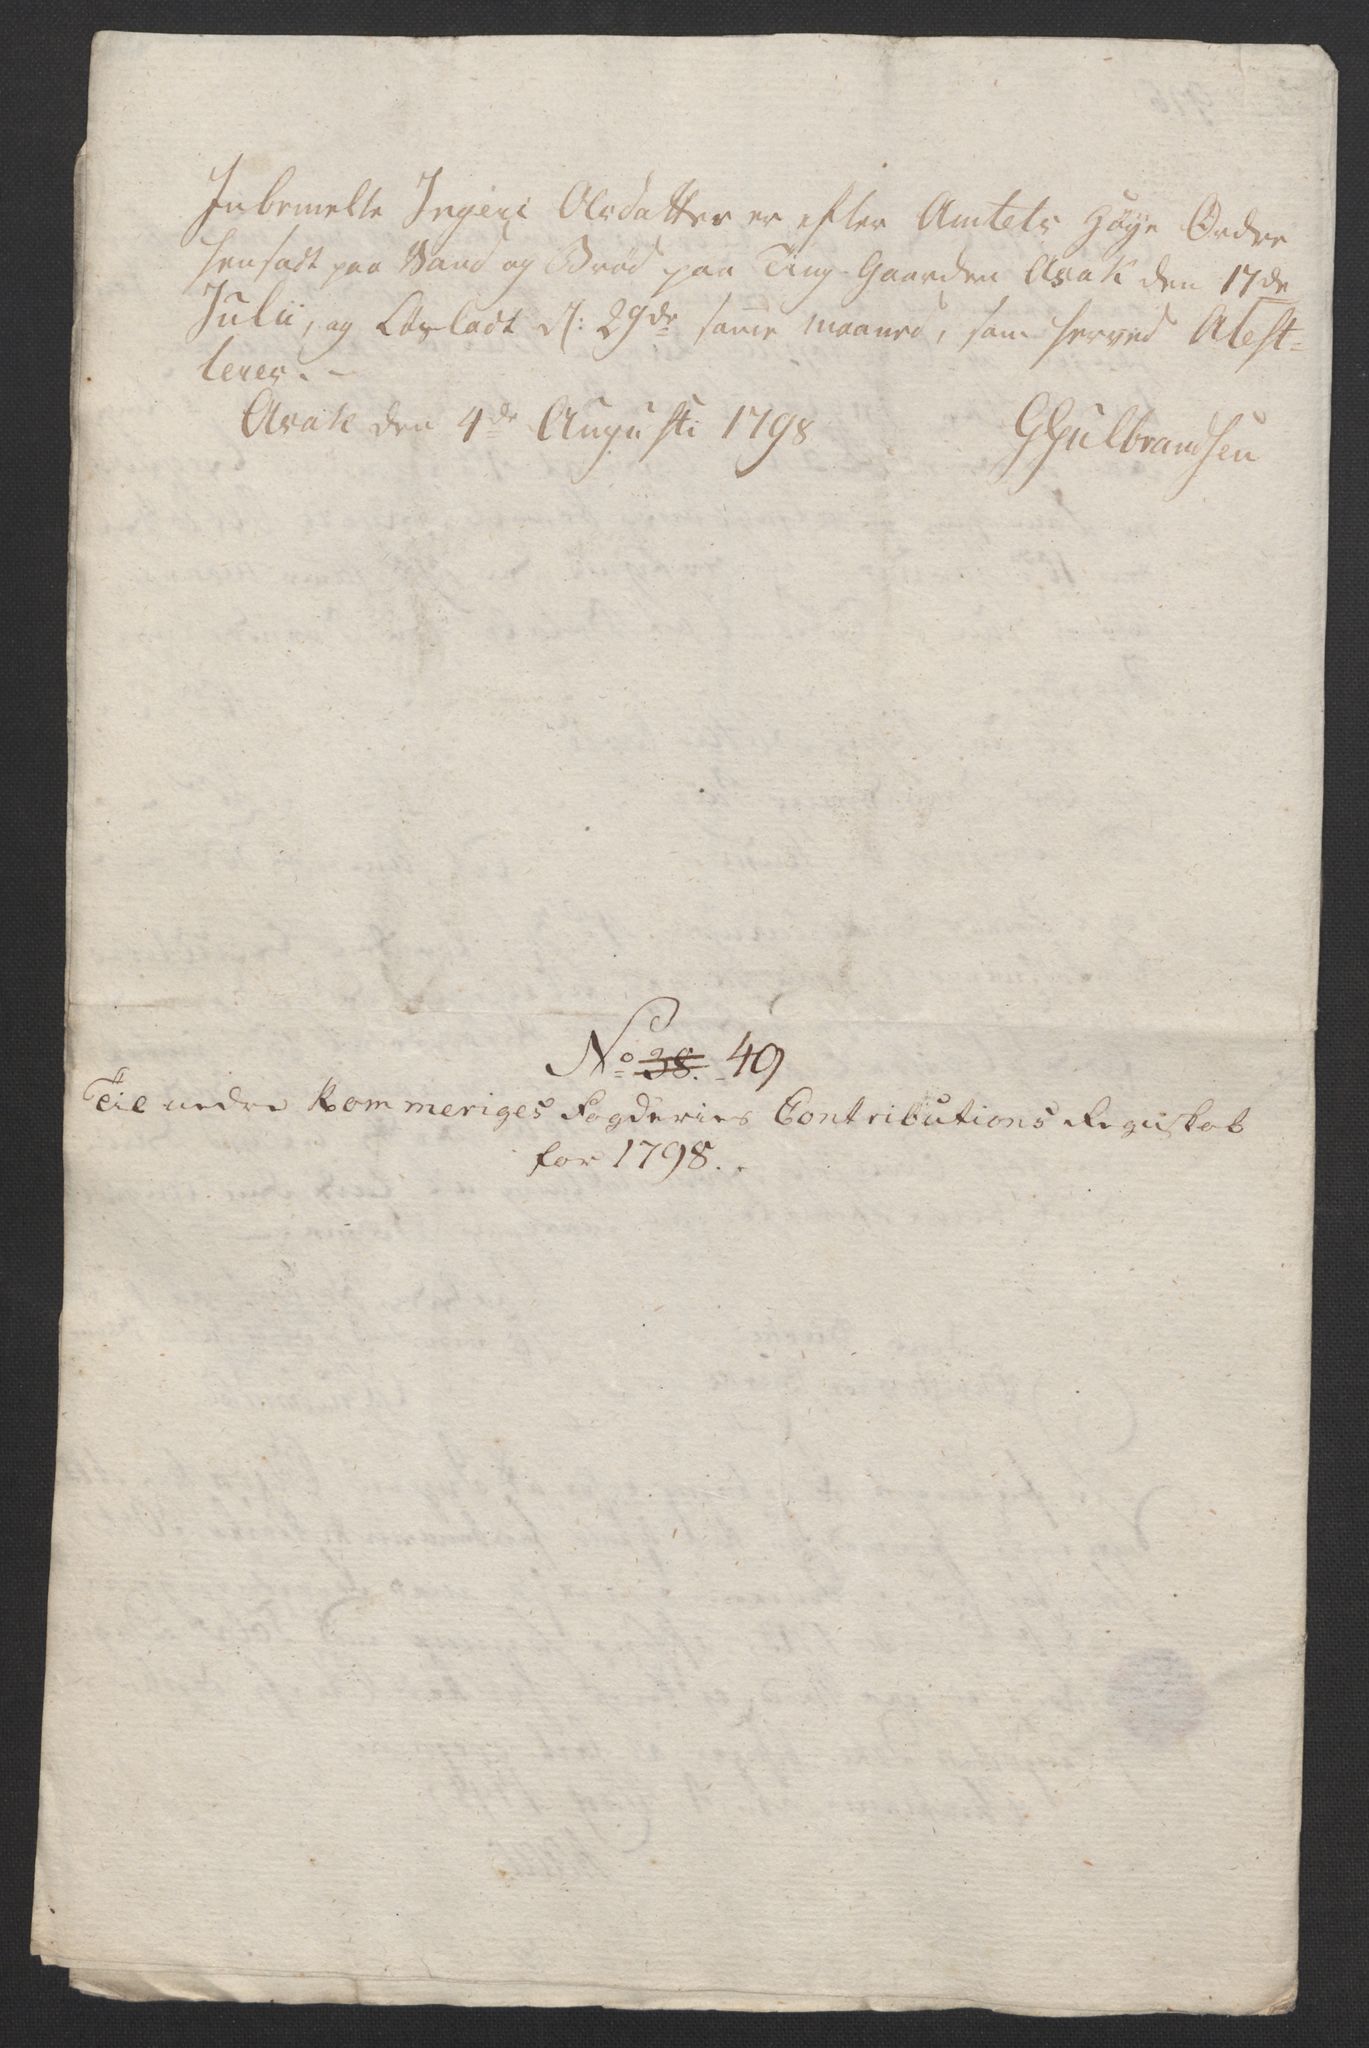 Inbemelte Ingeri Olsdatter er efter Amtets høye Ordre
hensadt paa Vand og Brød paa Ting-Gaarden Asak den 17de
Julii, og Løsladt d: 29de samme maaned, som herved Atest-
teres. -
Asak den 4de Augusti 1798
GGulbrandsen
No 38. 49
Til nedre Rommeriges Fogderies Contributions Regnskab
for 1798.